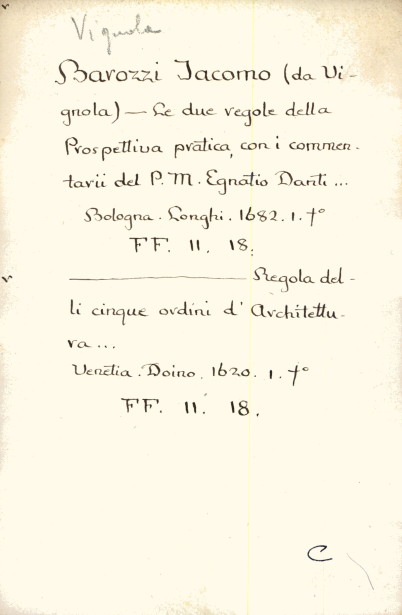 Vignola
Barozzi Iacomo (da Vi-
gnola) — Le due regole della
Prospettiva pratica, con i commen-
tarii del P. M. Egnatio Danti ...
Bologna. Longhi. 1682. 1. f°
FF. II. 18.
——— Regola del-
li cinque ordini d'Architettu-
ra ...
Venetia. Doino. 1620. 1. f°
FF. II. 18.
C